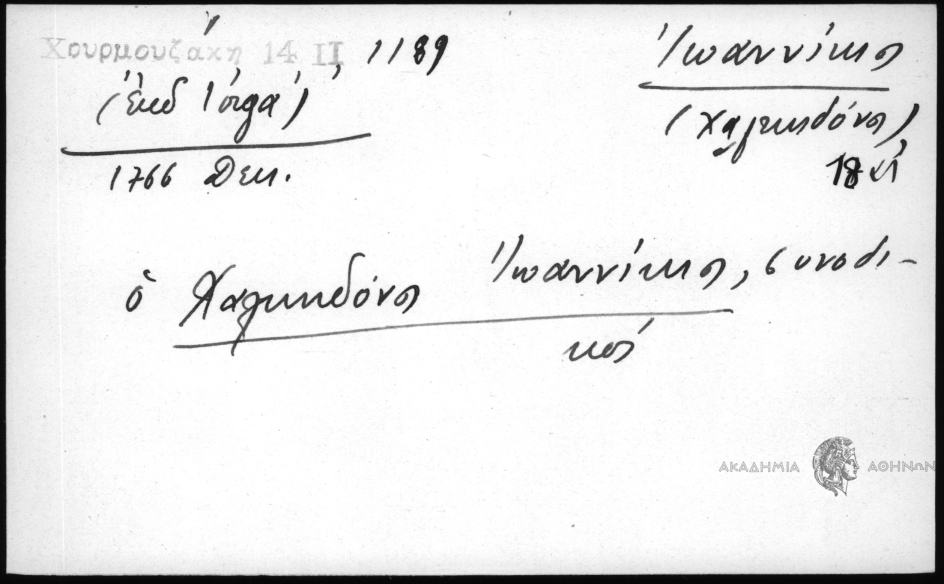 Χουρμουζάκη 14 II 1189
(ἐκδ Ἰόργα)
1766 Δεκ.
Ἰωαννίκιος
(Χαλκηδόνος)
18 αἰ
ὁ Χαλκηδόνος Ἰωαννίκιος, συνοδι-
κός
ΑΚΑΔΗΜΙΑ ΑΘΗΝΩΝ